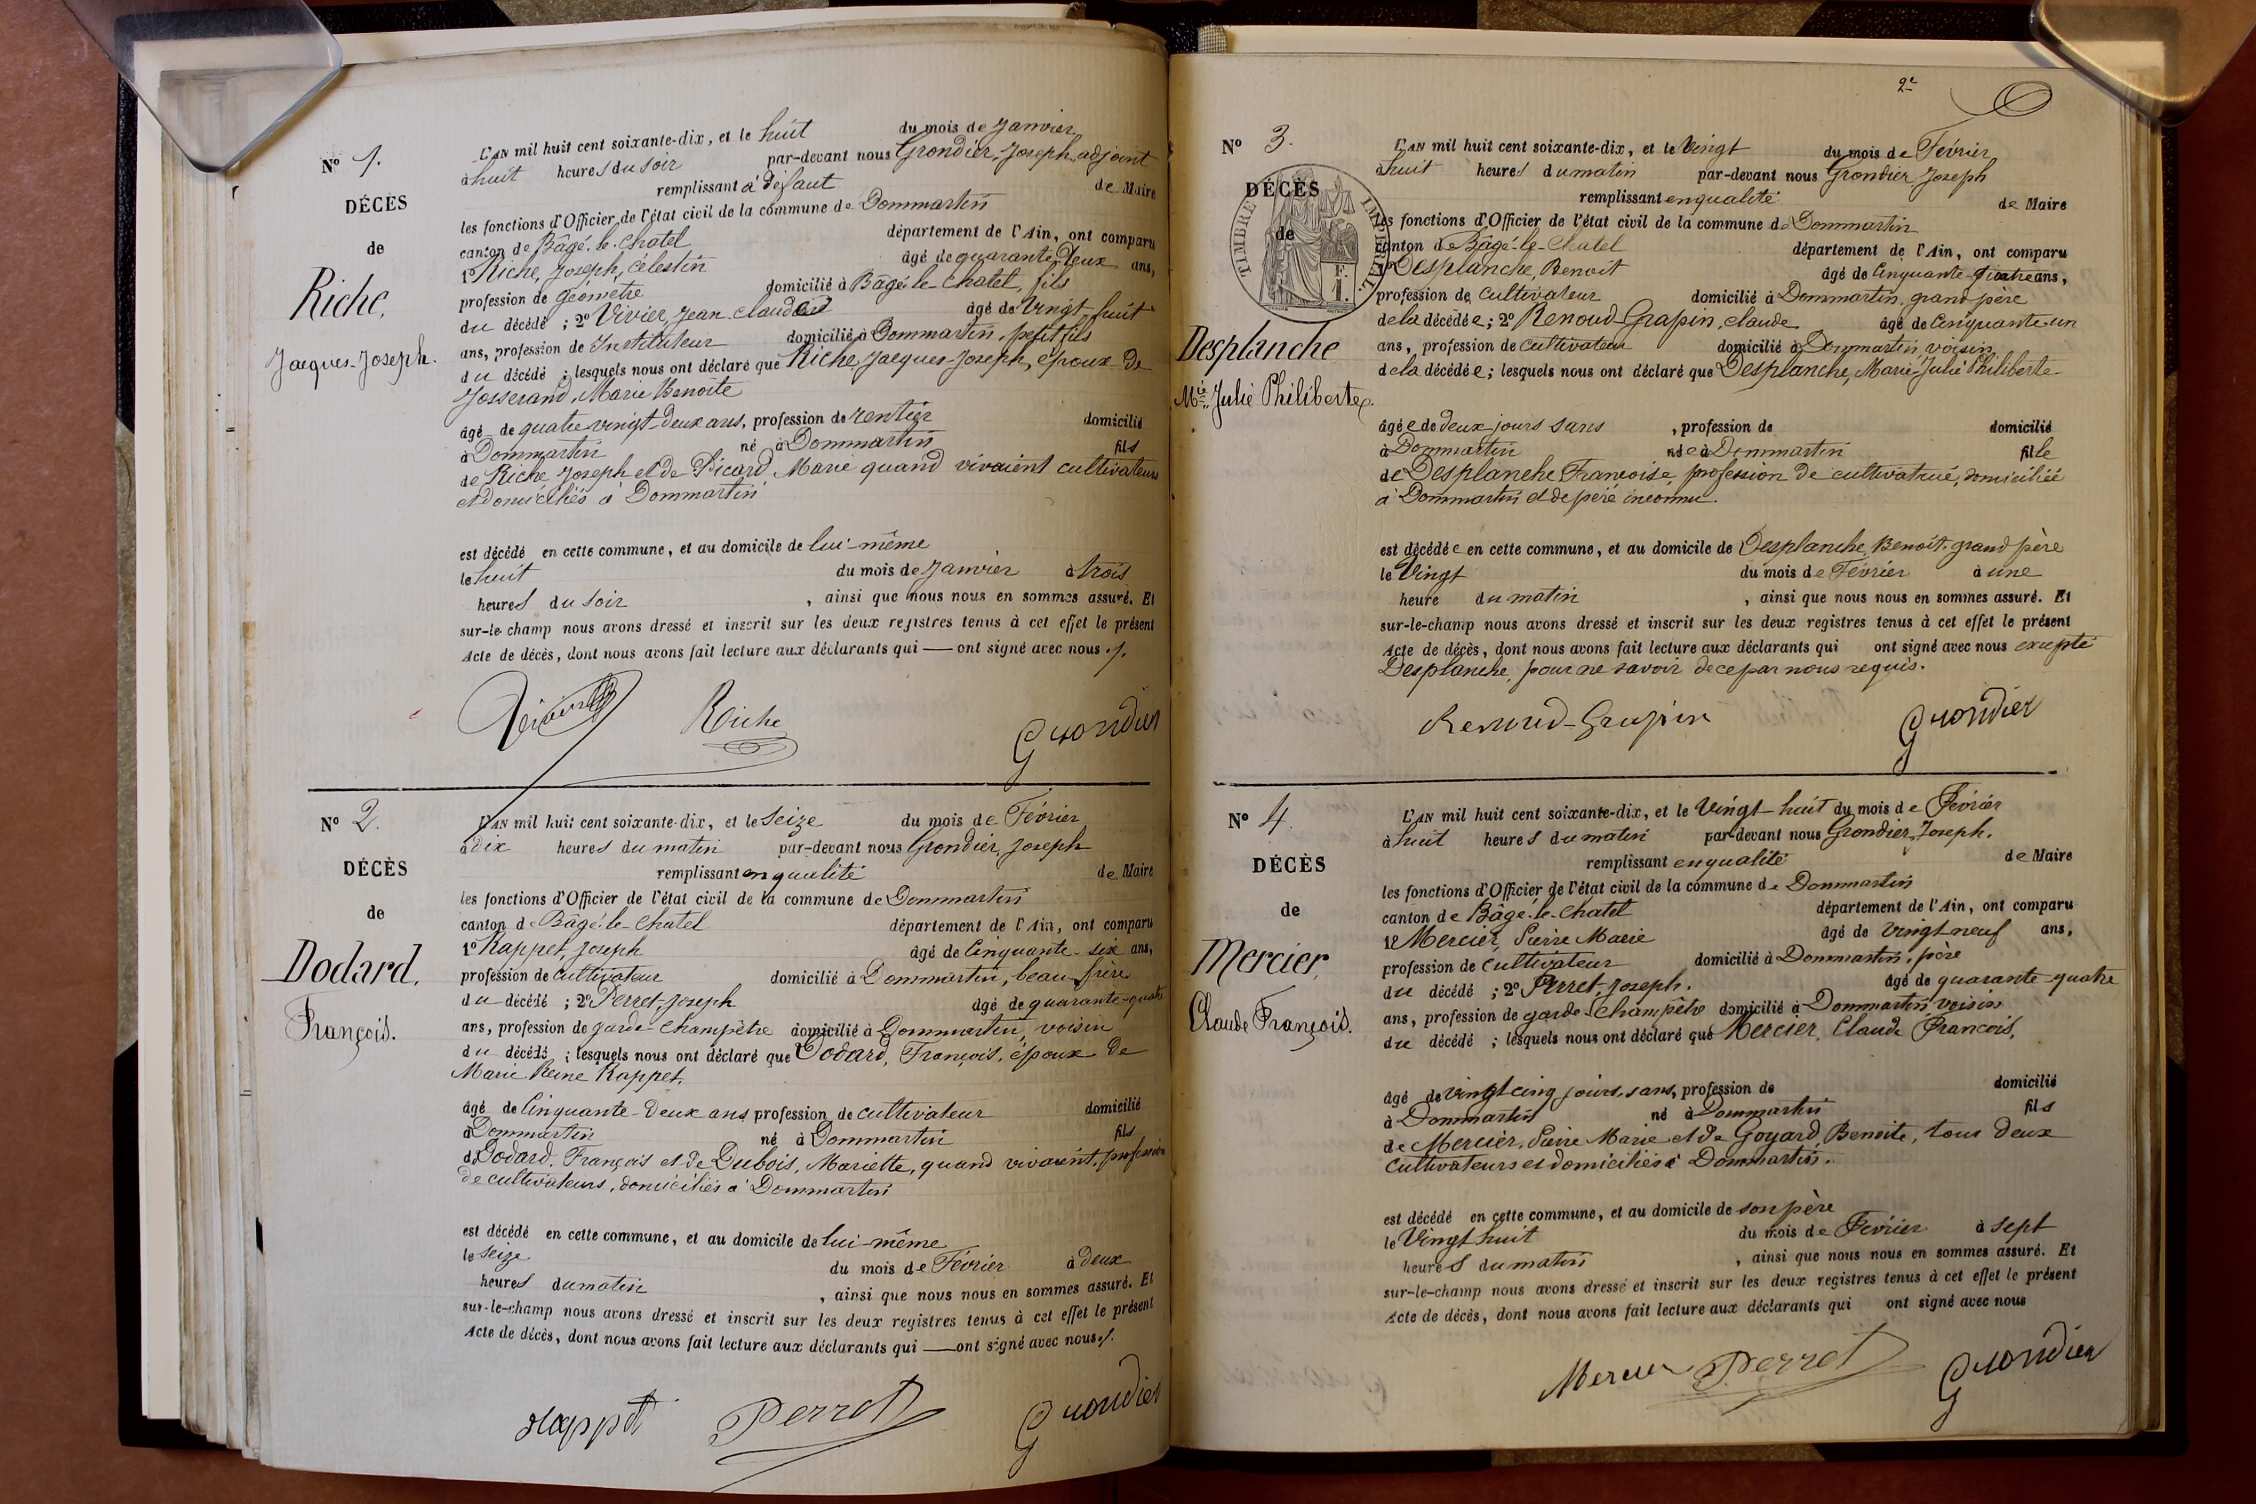 N° 1.
DÉCÈS
de
Riche,
Jacques-Joseph.
L'AN mil huit cent soixante-dix, et le huit du mois de Janvier
à huit heures du soir par-devant nous Grondier, Joseph, adjoint
remplissant à défaut de Maire
les fonctions d'Officier de l'état civil de la commune de Dommartin
canton de Bâgé-le-Chatel département de l'Ain, ont comparu
1° Riche, Joseph, Célestin âgé de quarante-deux ans,
profession de géomètre domicilié à Bâgé-le-Chatel, fils
du décédé ; 2° Vivier, Jean-Claude âgé de vingt-huit
ans, profession de Instituteur domicilié à Dommartin, petit fils
du décédé ; lesquels nous ont déclaré que Riche, Jacques-Joseph, époux de
Josserand, Marie Benoite
âgé de quatre vingt-deux ans, profession de rentier domicilié
à Dommartin né à Dommartin fils
de Riche Joseph et de Picard Marie quand vivaient cultivateurs
et domiciliés à Dommartin
est décédé en cette commune, et au domicile de lui-même
le huit du mois de Janvier à trois
heures du soir , ainsi que nous nous en sommes assuré. Et
sur-le-champ nous avons dressé et inscrit sur les deux registres tenus à cet effet le présent
Acte de décès, dont nous avons fait lecture aux déclarants qui — ont signé avec nous ./.
Riche Grondier
N° 2.
DÉCÈS
de
Dodard,
François.
L'AN mil huit cent soixante-dix, et le seize du mois de Février
à dix heures du matin par-devant nous Grondier, Joseph
remplissant en qualité de Maire
les fonctions d'Officier de l'état civil de la commune de Dommartin
canton de Bâgé-le-Chatel département de l'Ain, ont comparu
1° Rappet, Joseph âgé de Cinquante-six ans,
profession de cultivateur domicilié à Dommartin, beau-frère
du décédé ; 2° Perret, Joseph âgé de quarante-quatre
ans, profession de garde-champêtre domicilié à Dommartin, voisin
du décédé ; lesquels nous ont déclaré que Dodard, François, époux de
Marie Reine Rappet,
âgé de Cinquante-deux ans profession de cultivateur domicilié
à Dommartin né à Dommartin fils
de Dodard, François et de Dubois, Mariette, quand vivaient, profession
de cultivateurs, domiciliés à Dommartin
est décédé en cette commune, et au domicile de lui-même
le seize du mois de Février à deux
heures du matin , ainsi que nous nous en sommes assuré. Et
sur-le-champ nous avons dressé et inscrit sur les deux registres tenus à cet effet le présent
Acte de décès, dont nous avons fait lecture aux déclarants qui — ont signé avec nous ./.
Rappet Perret Grondier
2e
N° 3.
TIMBRE IMPÉRIAL
F.
1.
DÉCÈS
de
Desplanche
Mie Julie Philiberte.
L'AN mil huit cent soixante-dix, et le Vingt du mois de Février
à huit heures du matin par-devant nous Grondier Joseph
remplissant en qualité de Maire
les fonctions d'Officier de l'état civil de la commune de Dommartin
canton de Bâgé-le-Chatel département de l'Ain, ont comparu
1° Desplanche, Benoit âgé de Cinquante-quatre ans,
profession de cultivateur domicilié à Dommartin, grand-père
de la décédée ; 2° Renoud-Grapin, Claude âgé de Cinquante-un
ans, profession de cultivateur domicilié à Dommartin, voisin
de la décédée ; lesquels nous ont déclaré que Desplanche, Marie-Julie Philiberte
âgée de deux jours sans , profession de domicilié
à Dommartin née à Dommartin fille
de Desplanche Francoise, profession de cultivatrice, domiciliée
à Dommartin et de père inconnu.
est décédée en cette commune, et au domicile de Desplanche, Benoit, grand père
le Vingt du mois de Février à une
heure du matin , ainsi que nous nous en sommes assuré. Et
sur-le-champ nous avons dressé et inscrit sur les deux registres tenus à cet effet le présent
Acte de décès, dont nous avons fait lecture aux déclarants qui ont signé avec nous excepté
Desplanche, pour ne savoir de ce par nous requis.
Renoud-Grapin Grondier
N° 4.
DÉCÈS
de
Mercier,
Claude François.
L'AN mil huit cent soixante-dix, et le Vingt-huit du mois de Février
à huit heures du matin par-devant nous Grondier, Joseph.
remplissant en qualité de Maire
les fonctions d'Officier de l'état civil de la commune de Dommartin
canton de Bâgé-le-Chatel département de l'Ain, ont comparu
1° Mercier, Pierre Marie âgé de vingt neuf ans,
profession de cultivateur domicilié à Dommartin, père
du décédé ; 2° Perret, Joseph. âgé de quarante-quatre
ans, profession de garde-champêtre domicilié à Dommartin, voisin
du décédé ; lesquels nous ont déclaré que Mercier, Claude François,
âgé de vingt cinq jours, sans, profession de domicilié
à Dommartin né à Dommartin fils
de Mercier, Pierre Marie et de Goyard, Benoite, tous deux
cultivateurs et domiciliés à Dommartin.
est décédé en cette commune, et au domicile de son père
le Vingt huit du mois de Février à sept
heures du matin , ainsi que nous nous en sommes assuré. Et
sur-le-champ nous avons dressé et inscrit sur les deux registres tenus à cet effet le présent
Acte de décès, dont nous avons fait lecture aux déclarants qui ont signé avec nous
Mercier Perret Grondier